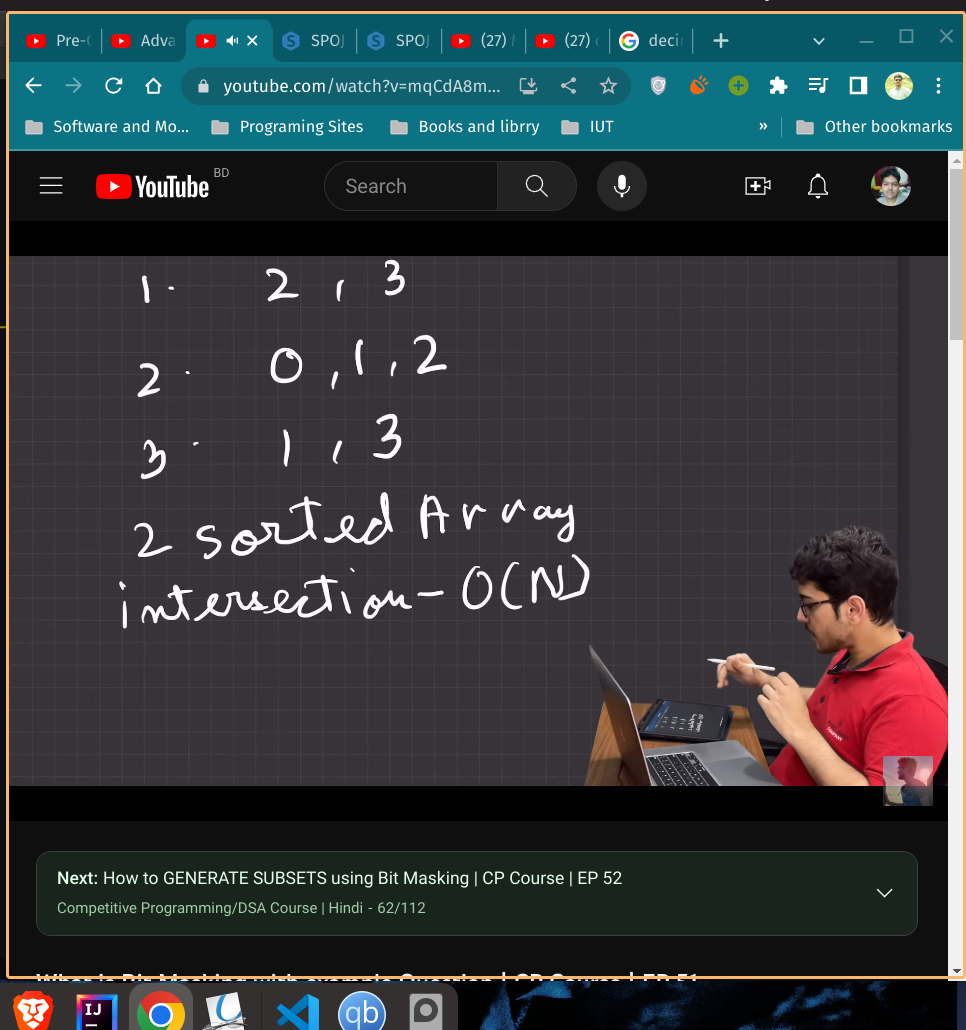 Pre-
Adva
SPOJ
SPOJ
(27)
(27)
deci
youtube.com/watch?v=mqCdA8m...
Software and Mo...
Programing Sites
Books and librry
IUT
»
Other bookmarks
YouTube BD
Search
1. 2, 3
2. 0, 1, 2
3. 1, 3
2 sorted Array
intersection - O(N)
Next: How to GENERATE SUBSETS using Bit Masking | CP Course | EP 52
Competitive Programming/DSA Course | Hindi - 62/112
What is Bit Masking with example Question | CP Course | EP 51
IJ
qb